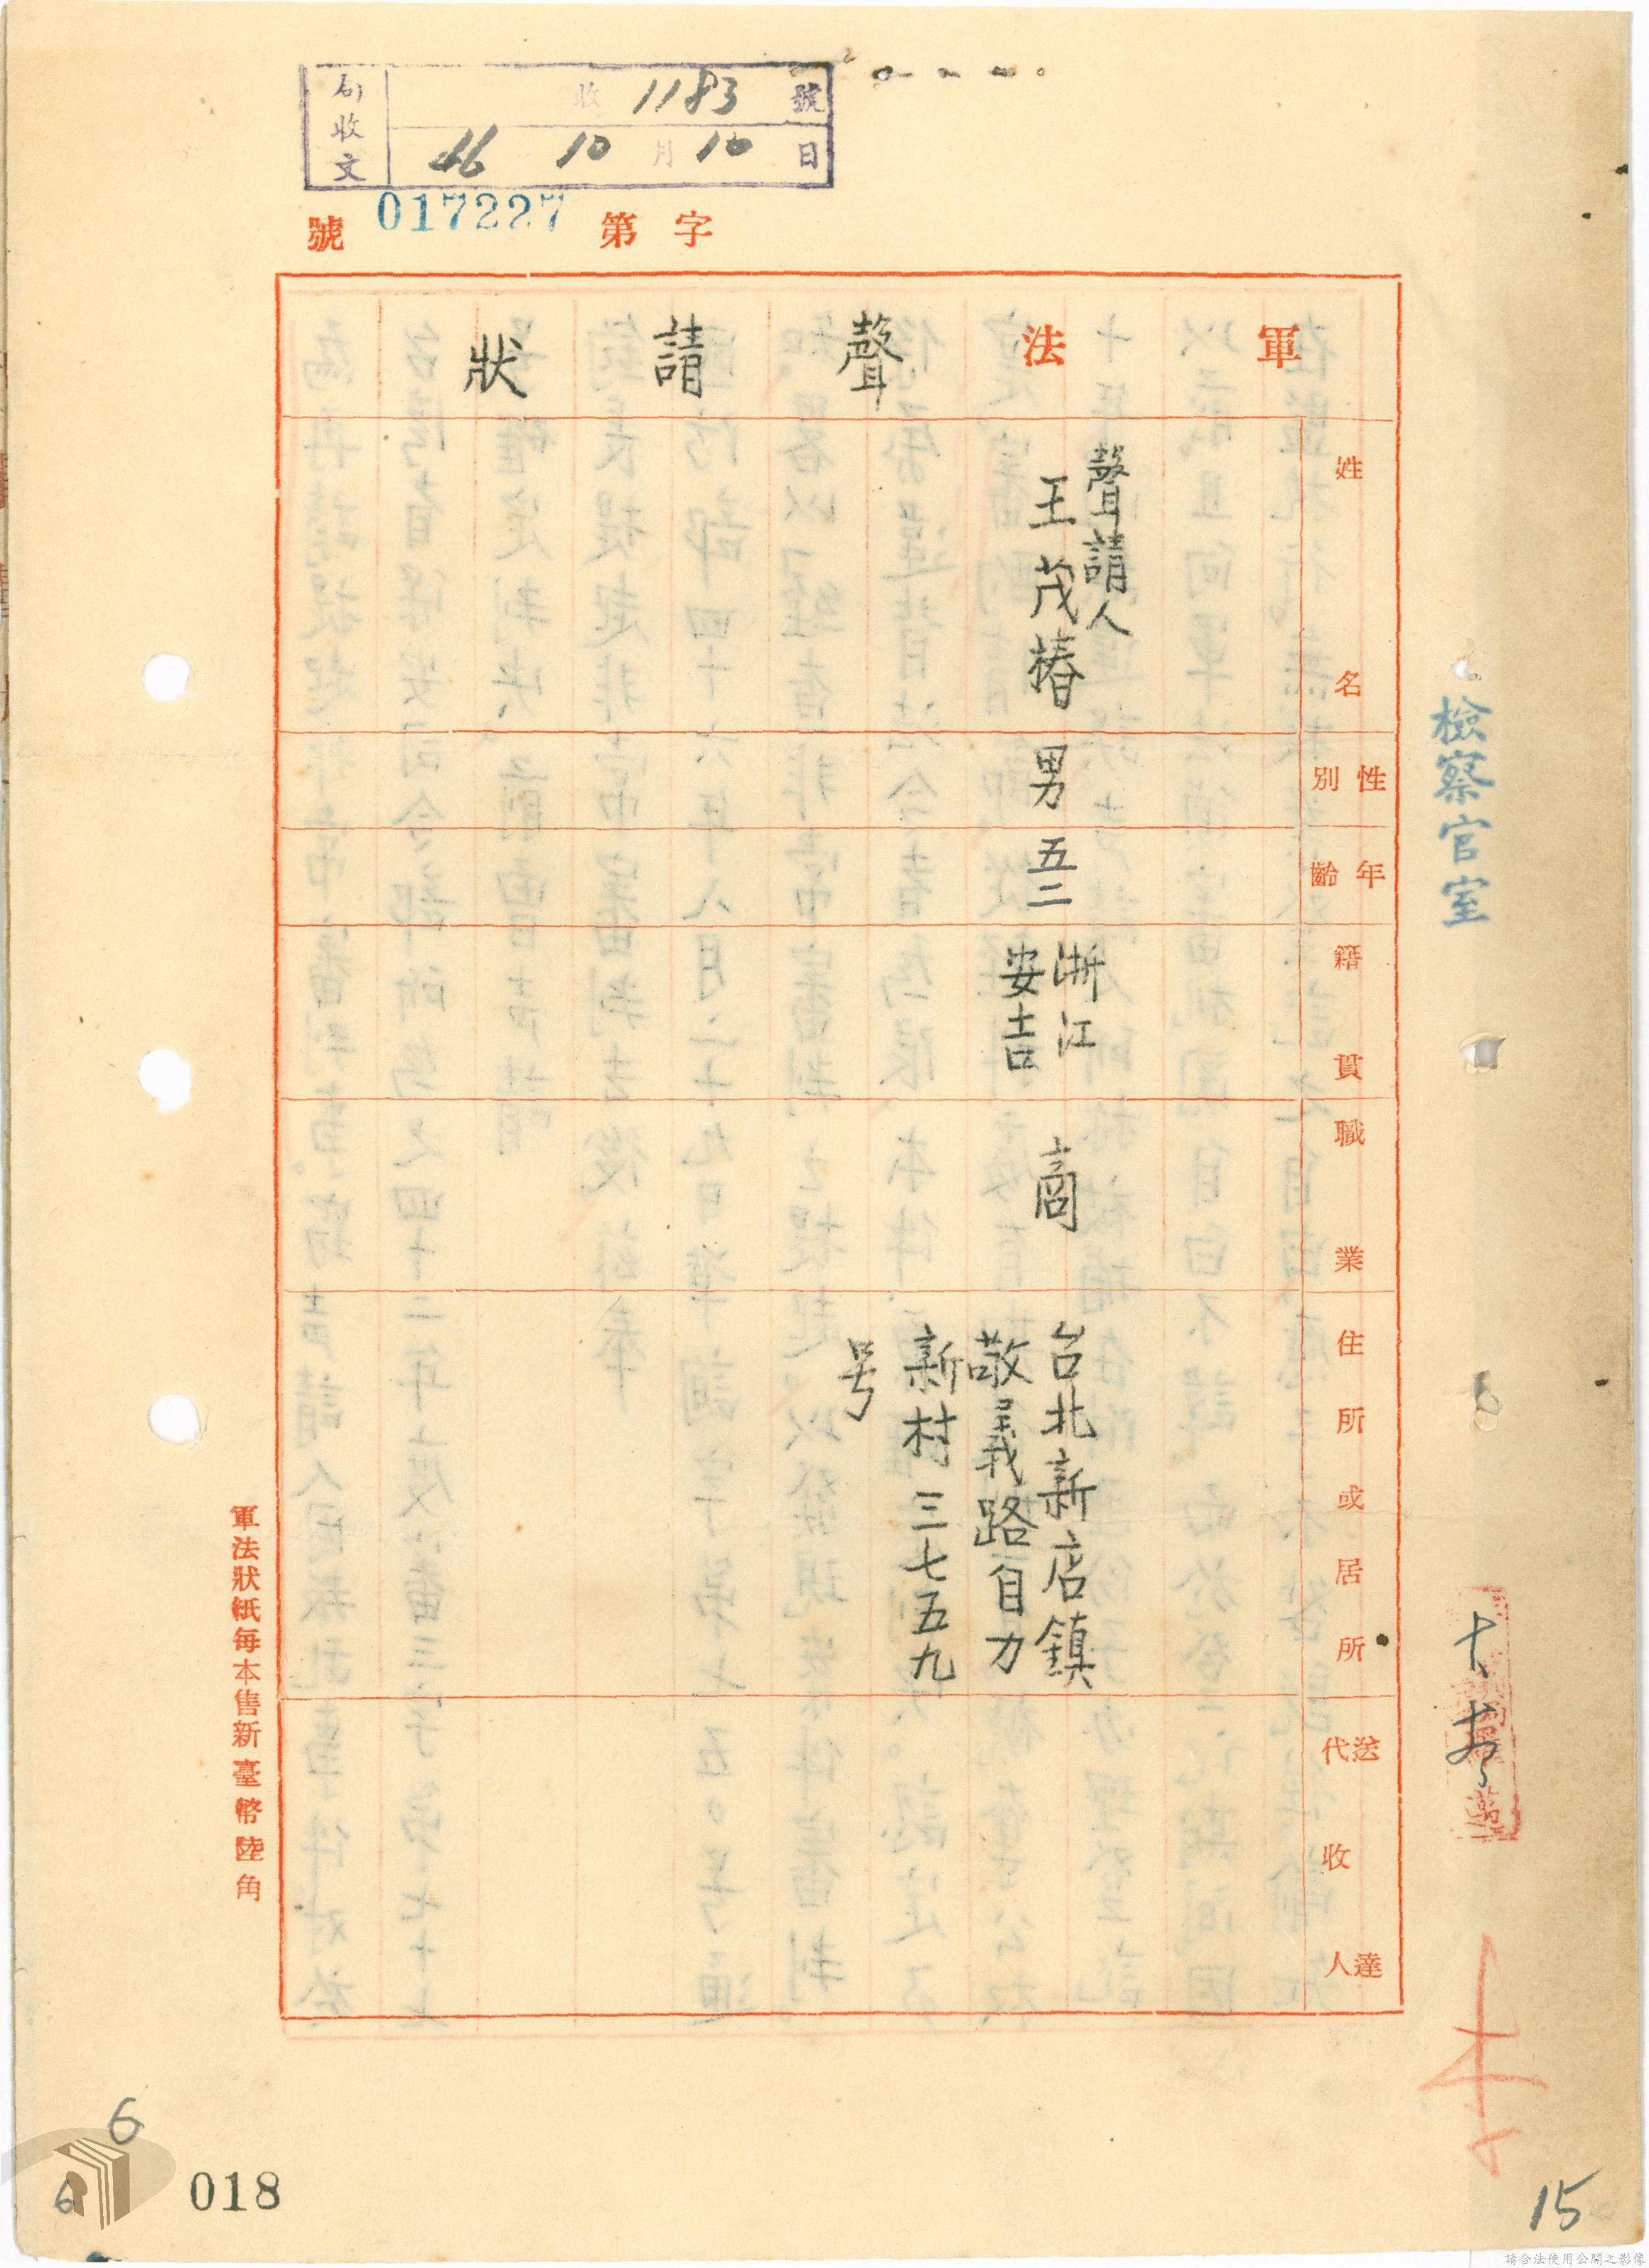 局收文
收1183號
46 10月10日
字第017227號
軍法聲請狀
姓名
聲請人
王茂椿
性別
男
年齡
五二
籍貫
浙江
安吉
職業
商
住所或居所
台北新店鎮
敬義路自力
新村三七五九
号
送達代收人
檢察官室
軍法狀紙每本售新臺幣陸角
李
6
6
018
15
請合法使用公開之影像